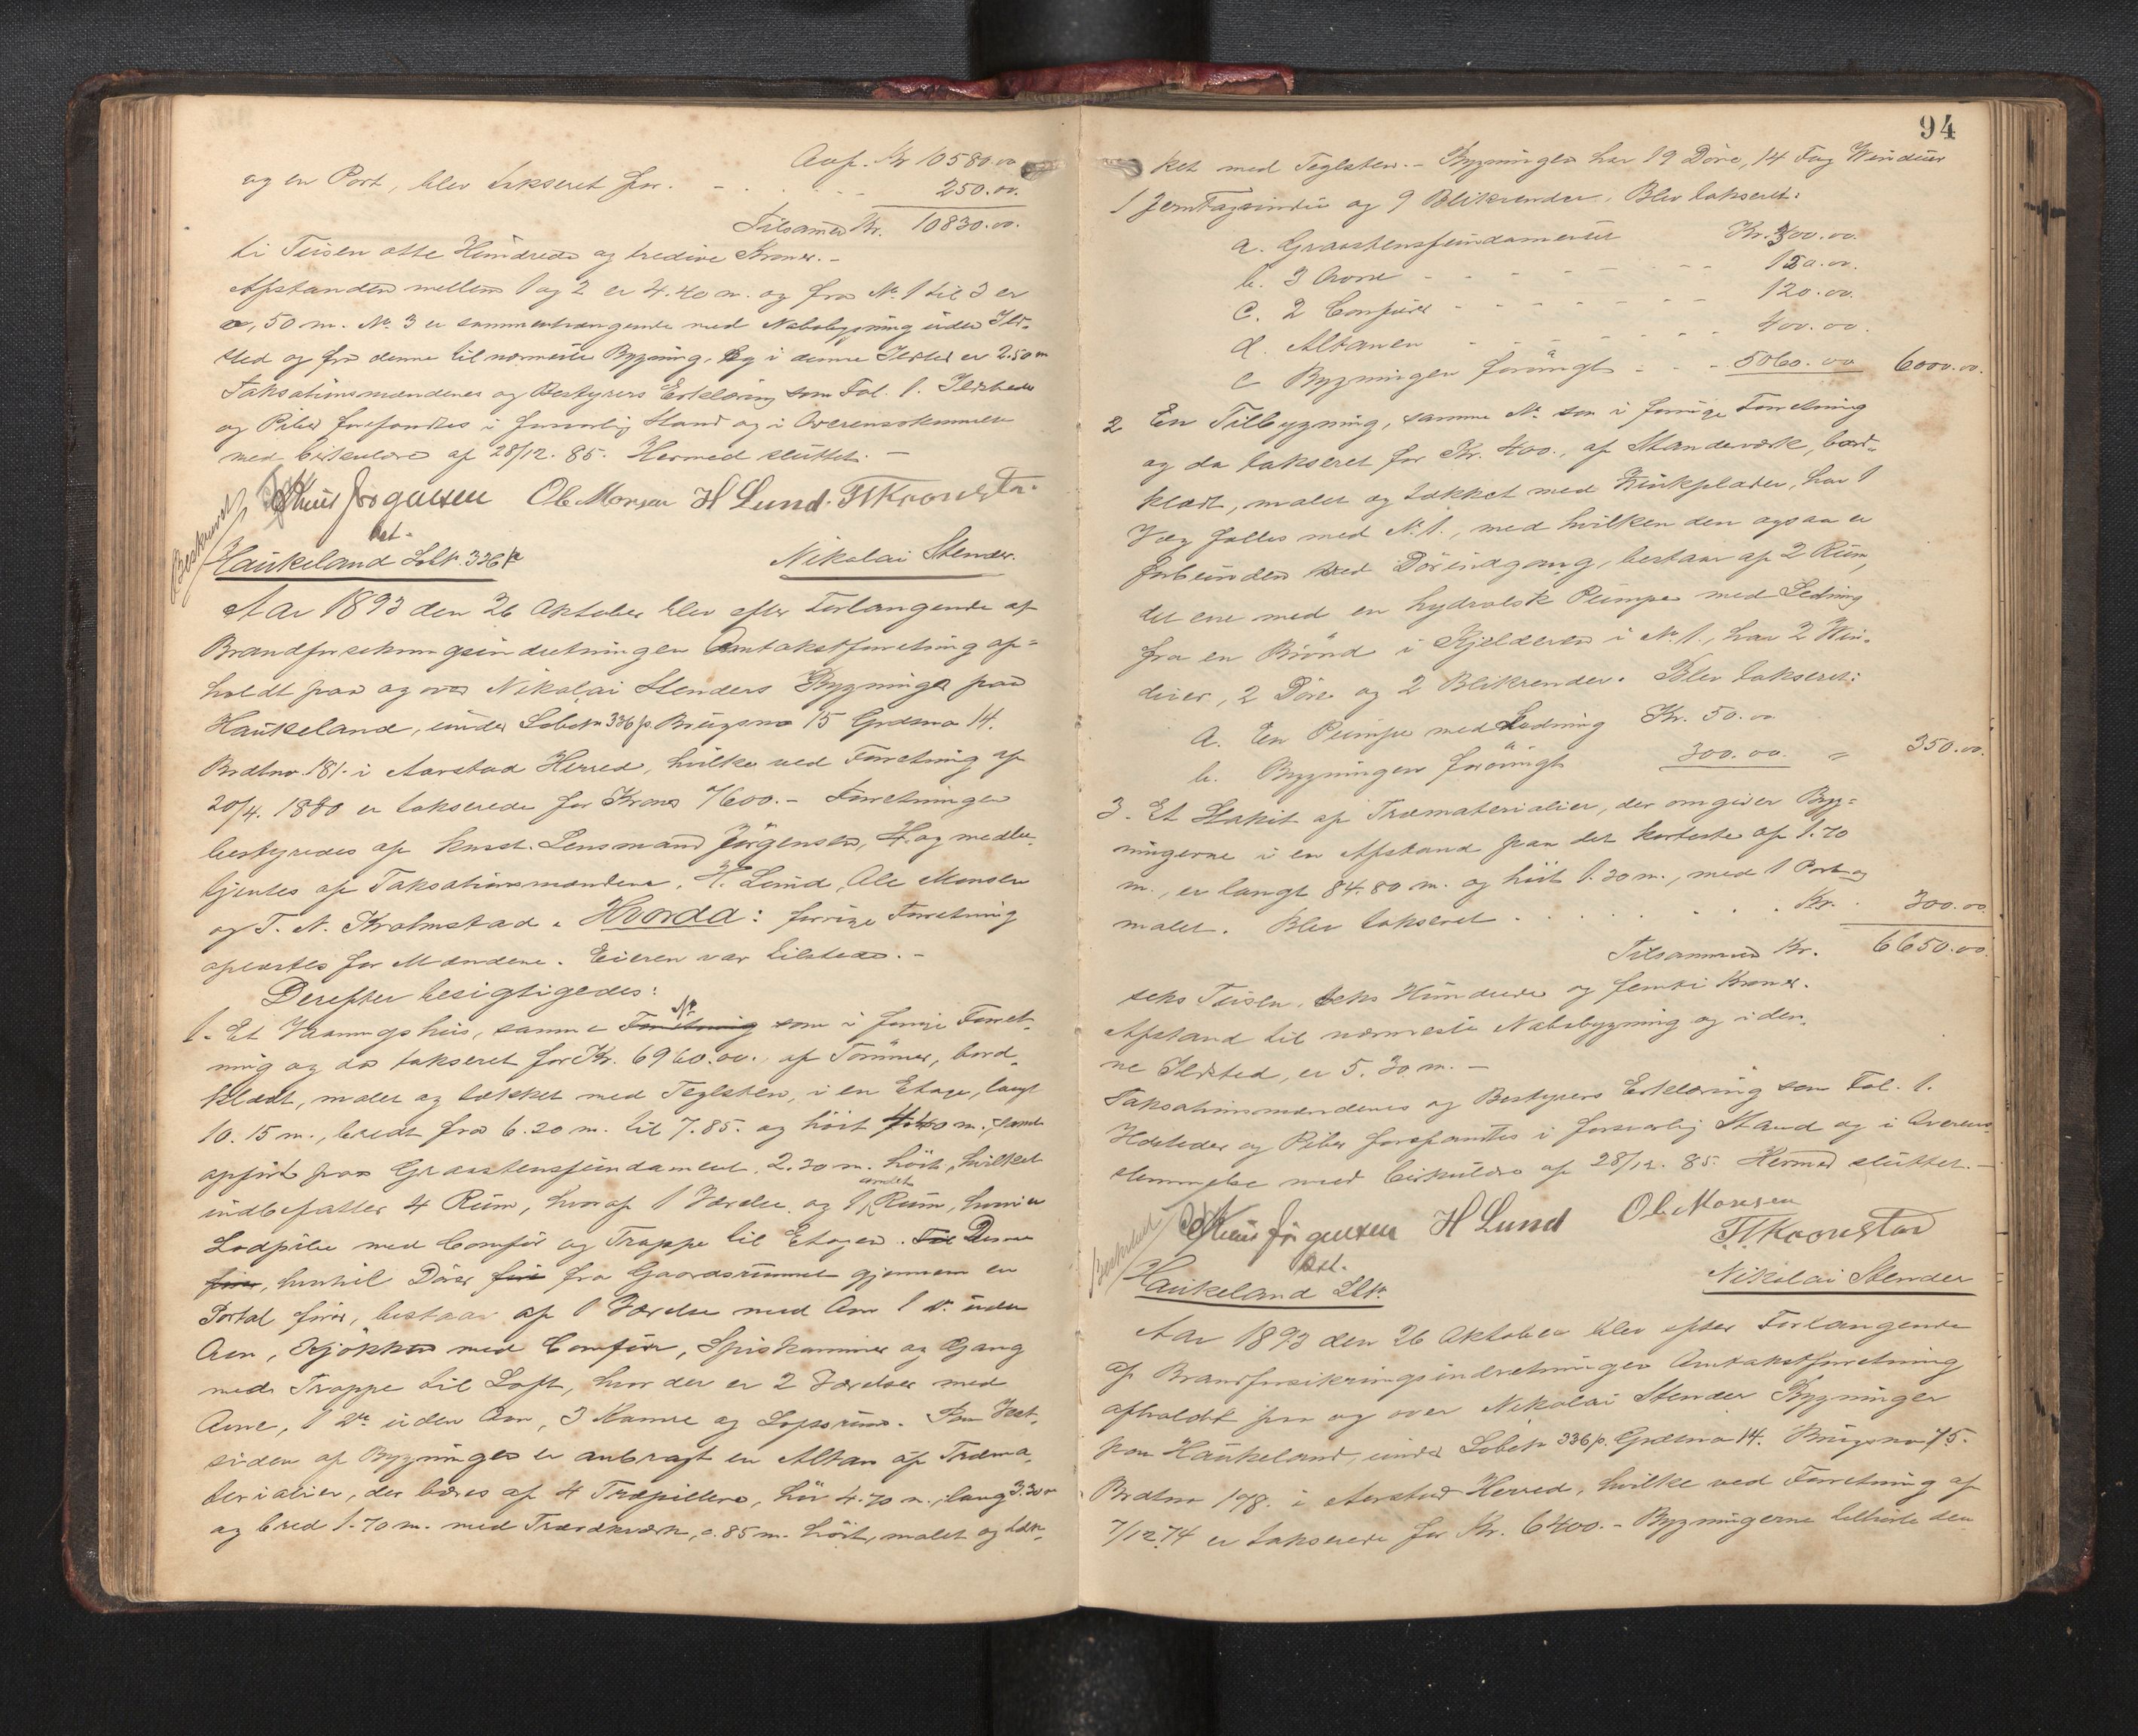 Ovf. Kr 10580.00
og en Port, blev takseret for. - . . . - - 250.00.
Tilsamen Kr. 10830.00.
ti Tusen otte Hundrede og tredive Kroner. -
Afstanden mellem 1 og 2 er 4.40 m. og fra No. 1 til 3 er
0,50 m. No. 3 er sammenhængende med Nabobygning uden Ild-
sted og fra denne til nærmeste Bygning, og i denne Ildsted er 2.50 m
Taksationsmændenes og Bestyrers Erklæring som Fol. 1. Ildsteder
og Piber forefandtes i forsvarlig Stand og i Overensstemmelse
med Cirkulære af 28/12. 85. Hermed sluttet. -
Jørgensen Ole Monsen H Lund.
kst.
Beskrevet
Haukeland Lobtn. 336 p
Nikolai Stender.
Aar 1893 den 26 Oktober blev efter Forlangende af
Brandforsikringsindretningen Omtakstforretning af-
holdt paa og over Nikolai Stenders Bygninger paa
Haukeland, under Lobetn 336 p Brugsno 15 Grdsno 14.
Brdtno. 181. i Aarstad Herred, hvilke ved Forretning af
20/4. 1880 er takserede for Kroner 7600. - Forretningen
bestyredes af konst. Lensmand Jørgensen, H. og medbe-
tjentes af Taksationsmændene, H. Lund, Ole Monsen
og T. N. . Hvorda: forrige Forretning
oplæstes for Mændene. Eieren var tilstede. -
Derefter besigtigedes:
1. Et Vaaningshus, samme Forretning No som i forrige Forret-
ning og da takseret for Kr. 6960.00., af Tømmer, bord-
klædt, malet og tækket med Teglsten, i en Etage, langt
10.15 m., bredt fra 6.20 m. til 7.85. og høit m., samt
opført paa Graastensfundament, 2.30 m. høit, hvilket
indbefatter 4 Rum, hvoraf 1 Værelse, og 1 andet Rum, hvori er
med Comfur og Trappe til Etagen. Til Denne
, hvortil Dører fra Gaardsrummet gjennem en
Portal fører, bestaar af 1 Værelse med Ovn 1 do. uden
Ovn, Kjøkken med Comfur, Spiskammer og Gang
med Trappe til Loft, hvor der er 2 Værelser med
Ovne, 1 do uden Ovn, 3 Kamre og . Paa Vest-
siden af Bygningen er anbragt en Altan af Træma-
terialier, der bæres af 4 Træpillere, høi 4.70 m., lang 3.30 m
og bred 1.70 m. med Trærækværk, 0.85 m. høit, malet og tæk-
94
ket med Teglsten. - Bygningen har 19 Døre, 14 Fag Winduer
1 Jerntagvindu og 9 Blikrender. Blev takseret:
a. Graastensfundamentet Kr. 300.00.
b. 3 Ovne - - - - - - - 120.00.
c. 2 Comfurer - - - - - - 120.00.
d. Altanen - - - - - - 400.00.
e Bygningen forøvrigt - - - 5060.00 6000.00.
2 En Tilbygning, samme No. som i forrige Forretning
og da takseret for Kr. 400., af Standværk, bord-
klædt, malet og tækket med Zinkplader, har 1
Væg fælles med No. 1., med hvilken den ogsaa er
forbunden ved Dørindgang, bestaar af 2 Rum,
det ene med en hydrolsk Pumpe med Ledning
fra en Brønd i Kjelderen i No. 1., har 2 Win-
duer, 2 Døre og 2 Blikrender. Blev takseret:
a. En Pumpe med Ledning Kr. 50.00
b. Bygningen forøvrigt 300.00. " 350.00.
3. Et Stakit af Træmaterialier, der omgiver Byg-
ningerne i en Afstand paa det korteste af 1.70
m., er langt 84.80 m. og høit 1.30 m., med 1 Port og
malet. Blev takseret . . . . . . Kr. . 300.00.
Tilsammen Kr. 6650.00.
seks Tusen, seks Hundrede og femti Kroner.
Afstand til nærmeste Nabobygning og i den-
ne Ildsted, er 5.30 m. -
Taksationsmændenes og Bestyrers Erklæring som Fol. 1.
Ildsteder og Piber forefandtes i forsvarlig Stand og i Overens-
stemmelse med Cirkulære af 28/12. 85. Hermed sluttet. -
Jørgensen H Lund Ole Monsen
kst.
Beskrevet
Haukeland Lbtn.
Nikolai Stender
Aar 1893 den 26 Oktober blev efter Forlangende
af Brandforsikringsindretningen Omtakstforretning
afholdt paa og over Nikolai Stender Bygninger
paa Haukeland, under Lobetn 336 p. Grdsno 14. Brugsno 15.
Brdtno 178. i Aarstad Herred, hvilke ved Forretning af
7/12.74 er takserede for Kr. 6400. - Bygningerne tilhørte den